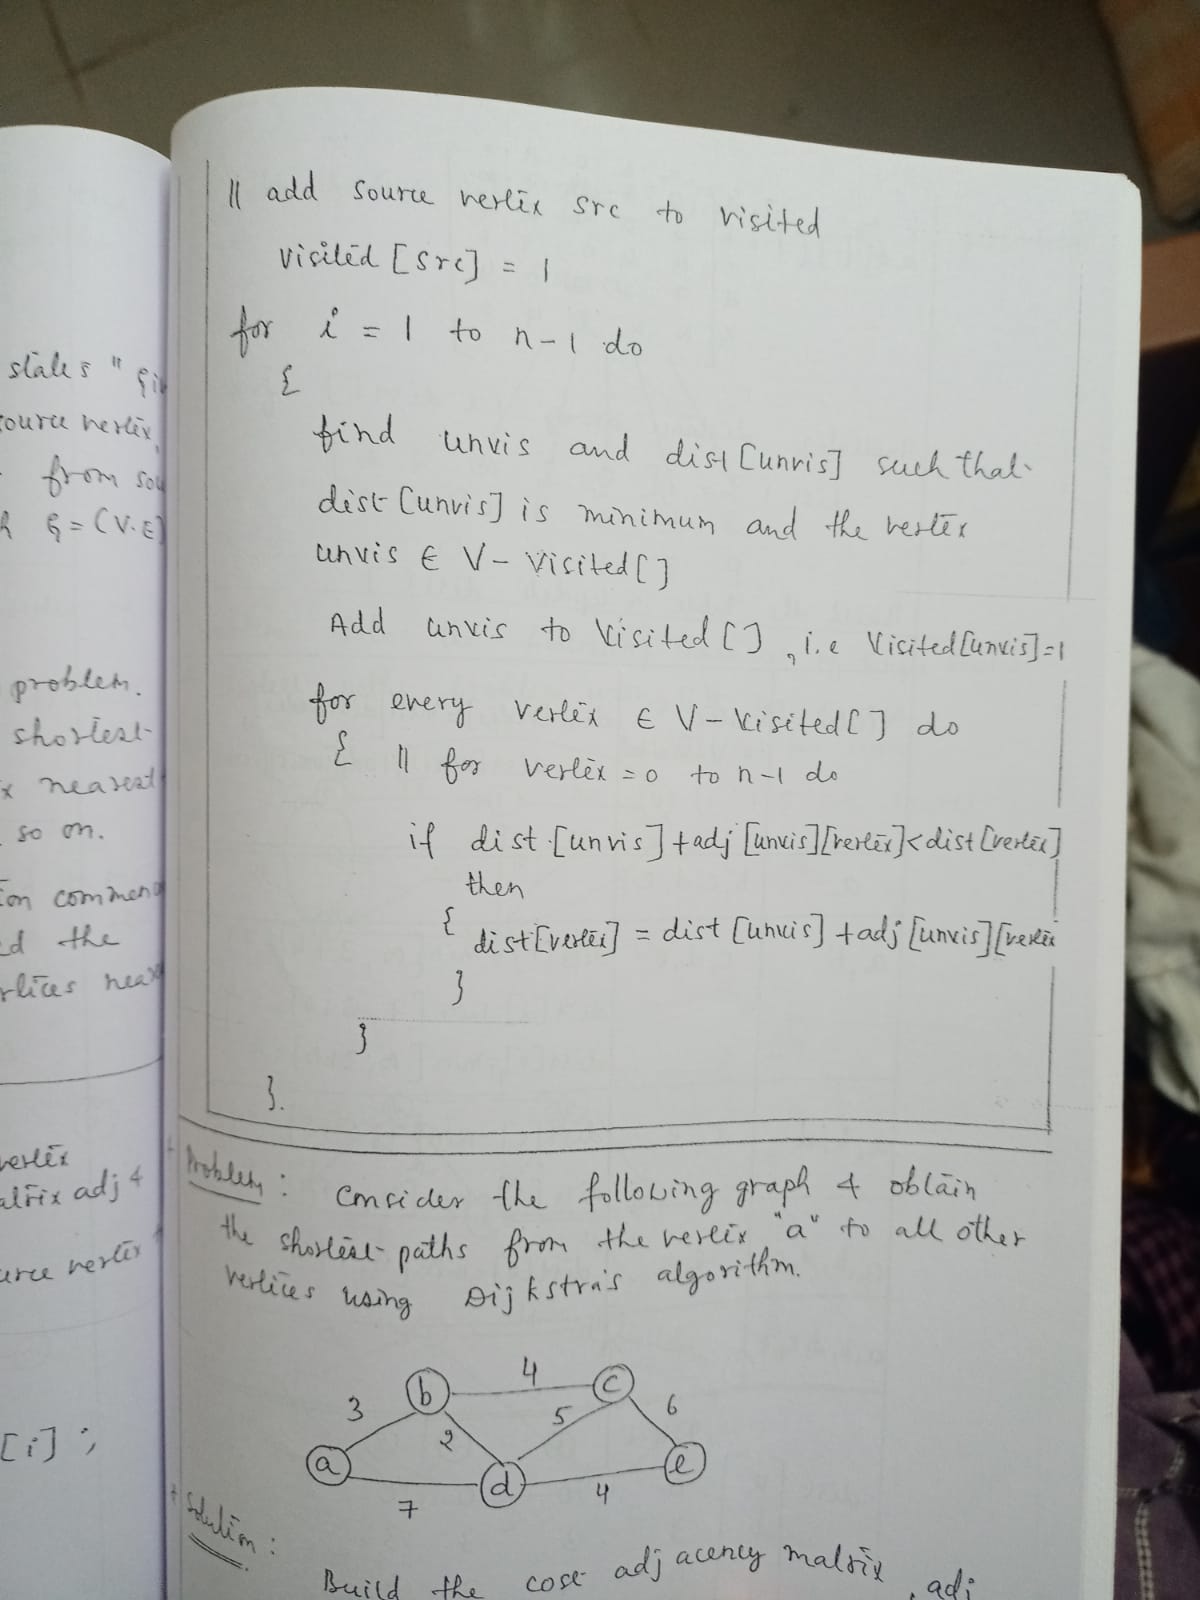 states "giv
source vertex,
from sou
G = (V.E)
problem.
shortest
x nearest
so on.
ion commenc
ed the
rtices near
vertex
atrix adj &
urce vertex
[i] ;
|| add source vertex src to visited
visited [src] = 1
for i = 1 to n-1 do
{
find unvis and dist [unvis] such that
dist [unvis] is minimum and the vertex
unvis ∈ V - Visited [ ]
Add unvis to Visited [ ] , i.e Visited [unvis] = 1
for every vertex ∈ V - Visited [ ] do
{ || for vertex = 0 to n-1 do
if dist [unvis] + adj [unvis][vertex] < dist [vertex]
then
{
dist [vertex] = dist [unvis] + adj [unvis][vertex
}
}
}.
Problem : Consider the following graph & obtain
the shortest paths from the vertex "a" to all other
vertices using Dijkstra's algorithm.
4
b c
3 5 6
2
a d e
7 4
Solution :
Build the cost adjacency matrix , adj